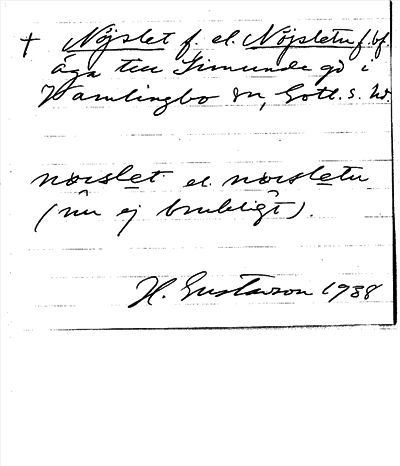 † Nöjslet f. el. Nöjsletu f. bf.
äga till Simunde gd i
Hamlingbo sn, Gotl. s. hd.
nɷislet el. nɷisletu
(nu ej brukligt).
H. Gustavson 1938